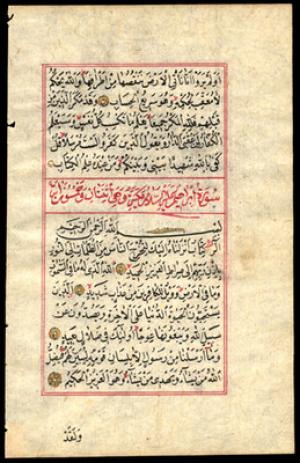 اولم يروا انا ناتي الارض ننقصها من اطرافها والله يحكم
لا معقب لحكمه وهو سريع الحساب وقد مكر الذين من
قبلهم فلله المكر جميعا يعلم ما تكسب كل نفس وسيعلم
الكفار لمن عقبى الدار ويقول الذين كفروا لست مرسلا قل
كفى بالله شهيدا بيني وبينكم ومن عنده علم الكتاب
سورة ابراهيم مكية وهي اثنتان وخمسون اية
بسم الله الرحمن الرحيم
الر كتاب انزلناه اليك لتخرج الناس من الظلمات الى النور
باذن ربهم الى صراط العزيز الحميد الله الذي له ما في السموات
وما في الارض وويل للكافرين من عذاب شديد الذين
يستحبون الحيوة الدنيا على الاخرة ويصدون عن
سبيل الله ويبغونها عوجا اولئك في ضلال بعيد
وما ارسلنا من رسول الا بلسان قومه ليبين لهم فيضل
الله من يشاء ويهدي من يشاء وهو العزيز الحكيم
ولقد